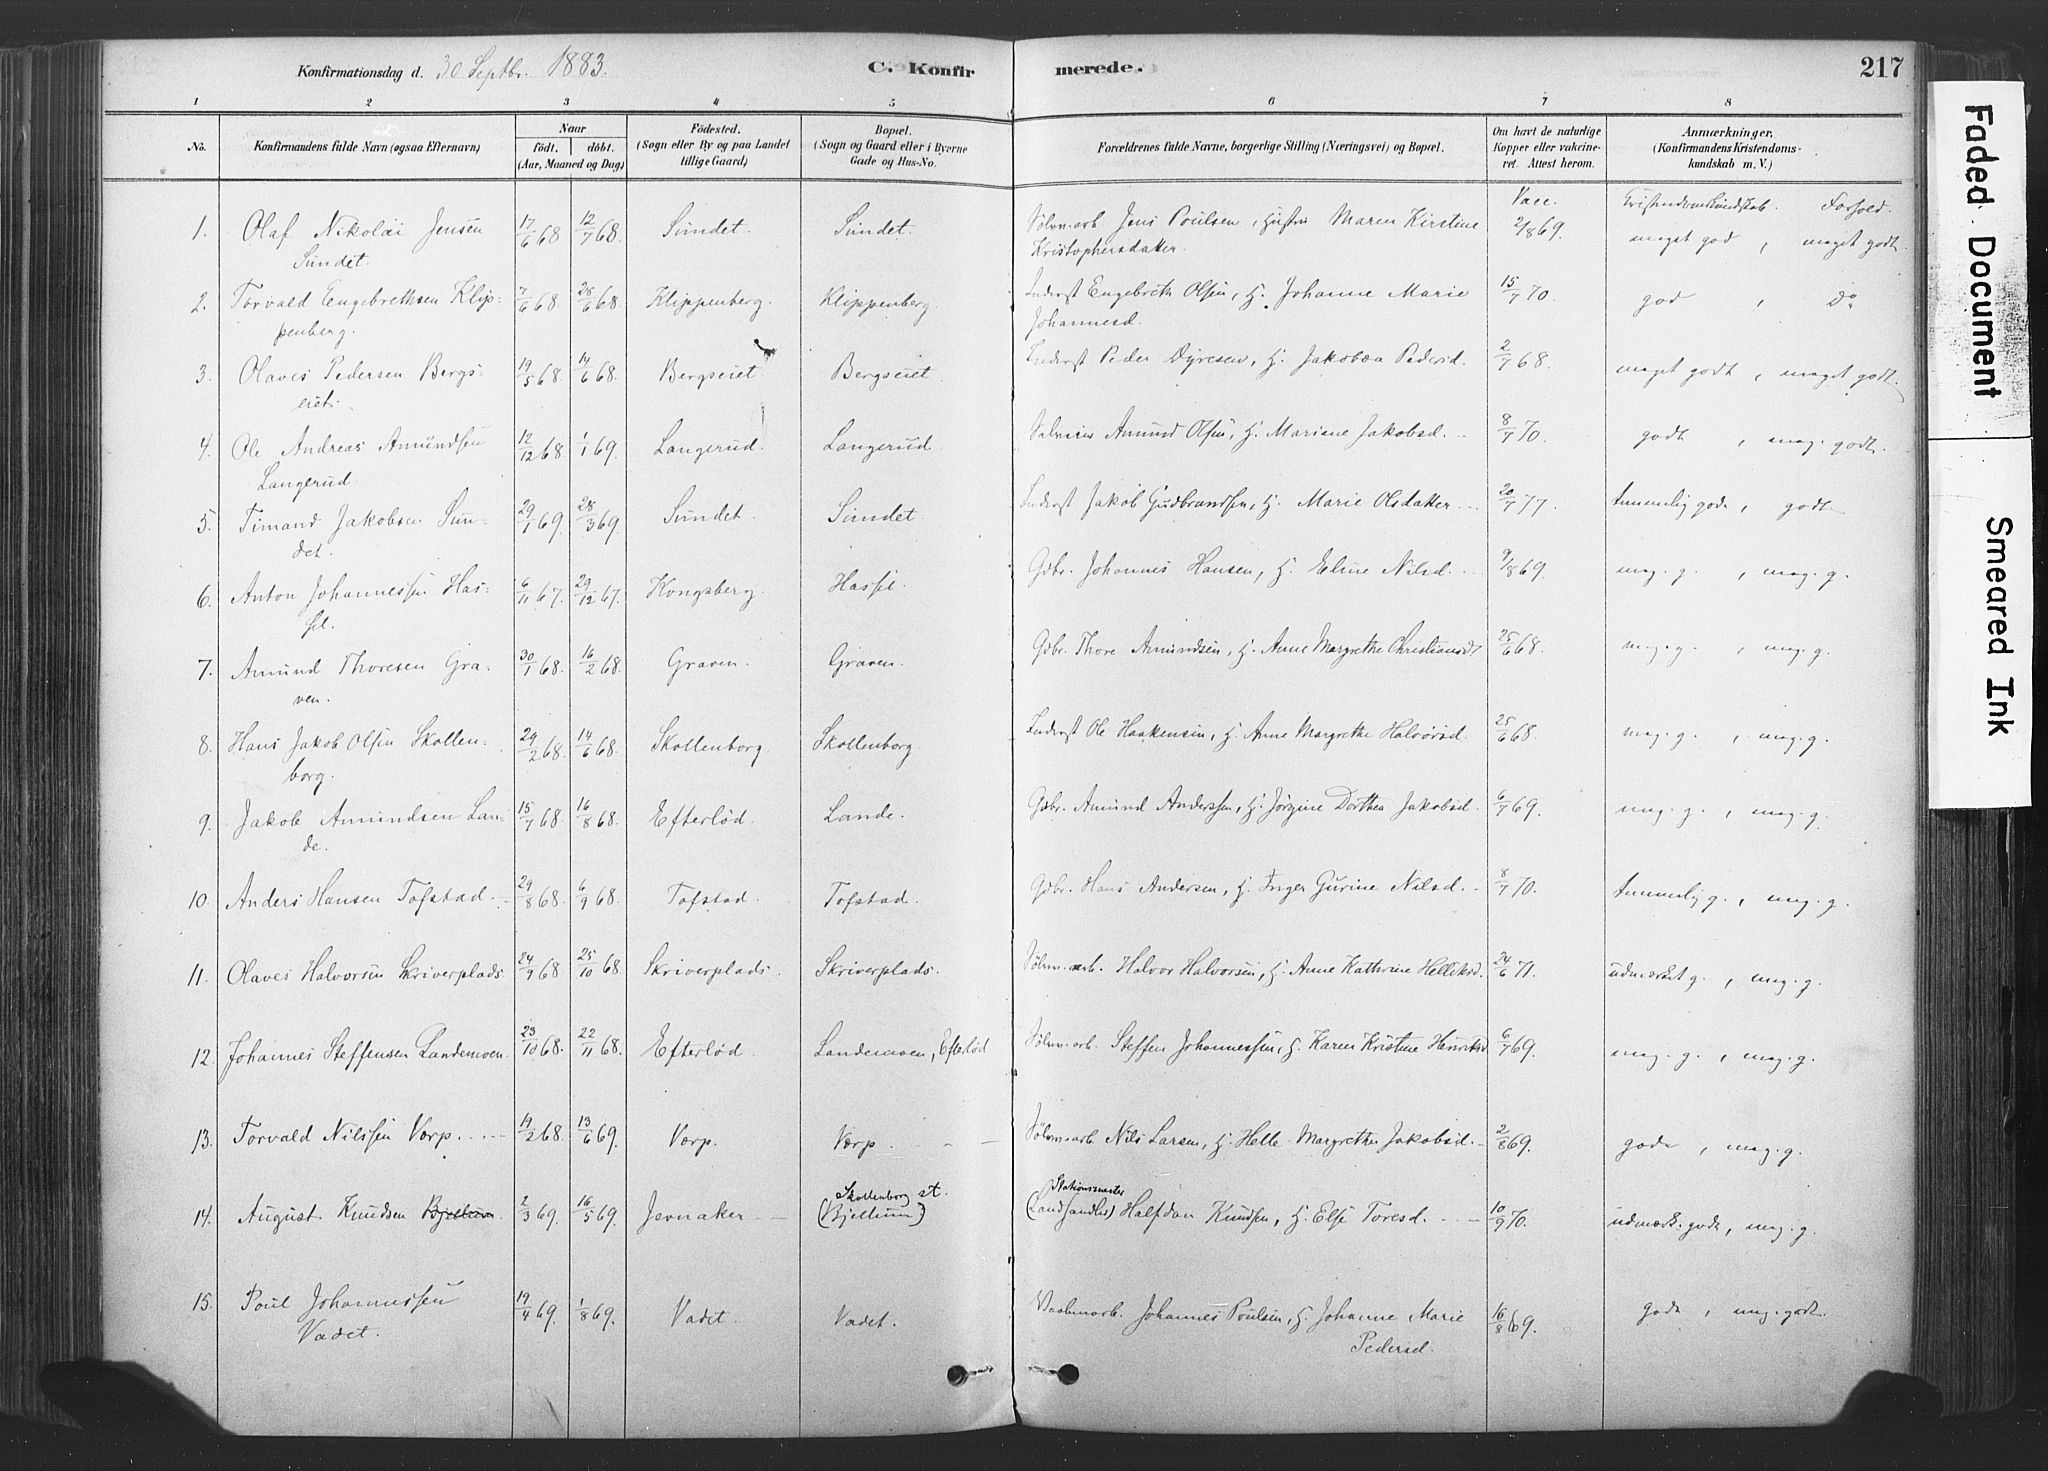 Konfirmationsdag d. 30 Septbr. 1883. C. Konfirmerede. 217
1 2 3 4 5 6 7 8
No. Konfirmandens fulde Navn (ogsaa Efternavn) Naar födt. döbt. (Aar, Maaned og Dag) Födested. (Sogn eller By og paa Landet tillige Gaard) Bopæl. (Sogn og Gaard eller i Byerne Gade og Hus-No. Forældrenes fulde Navne, borgerlige Stilling (Næringsvei) og Bopæl. Om havt de naturlige Kopper eller vakcineret. Attest herom. Anmærkninger, (Konfirmandens Kristendomskundskab m. V.)
Vacc. Kristendomskundskab. Forhold.
1. Olaf Nikolai Jensen Sundet. 17/6 68 12/7 68. Sundet. Sundet. Sølvv.arb. Jens Poulsen, Hustru Maren Kirstine Kristophersdatter. 2/8 69. meget god, meget godt.
2. Torvald Engebrethsen Klippenberg. 7/6 68 28/6 68. Klippenberg. Klippenberg. Inderst Engebreth Olsen, H. Johanne Marie Johannesd. 15/7 70 god, do
3. Olaves Pedersen Bergseiet. 19/5 68. 14/6 68. Bergseiet Bergseiet. Inderst Peder Dyresen, H. Jakobæa Pedersd. 2/7 68. meget godt, meget godt.
4. Ole Andreas Amundsen Langerud. 12/12 68. 1/1 69. Langerud. Langerud. Amund Olsen, H. Mariane Jakobsd. 8/7 70. godt, meg. godt.
5. Timand Jakobsen Sundet. 29/1 69. 28/3 69. Sundet. Sundet. Inderst Jakob Gudbrandsen, H. Marie Olsdatter 20/7 77. temmelig gode, godt
6. Anton Johannessen Hassel. 6/11 67. 29/12 67. Kongsberg. Hassel. Gdbr. Johannes Hansen, H. Eline Nilsd. 9/8 69. meg. g., meg. g.
7. Amund Thoresen Graven. 30/1 68. 16/2 68. Graven. Graven. Gdbr. Thore Amundsen, H. Anne Margrethe Christiansd. 25/6 68. meg. g., meg. g.
8. Hans Jakob Olsen Skollenborg. 29/2 68. 14/6 68. Skollenborg. Skollenborg Inderst Ole Haakensen, H. Anne Margrethe Halvorsd. 25/6 68. meg. g., meg. g.
9. Jakob Amundsen Lande. 15/7 68. 16/8 68. Efterlød. Lande. Gdbr. Amund Anderssen, H. Jørgine Dorthea Jakobsd. 6/7 69. meg. g., meg. g.
10. Anders Hansen Tofstad. 29/8 68. 6/9 68. Tofstad. Tofstad. Gdbr. Hans Andersen, H. Inger Gurine Nilsd. 8/7 70. temmelig g., meg. g.
11. Olaves Halvorsen Skriverplads 24/9 68 25/10 68 Skriverplads. Skriverplads. Sølvv.arb. Halvor Halvorsen, H. Anne Kathrine Helliksd. 24/6 71. udmærket g., meg. g.
12. Johannes Steffensen Landemoen. 23/10 68. 22/11 68. Efterlød. Landemoen, Efterlød Sølvv.arb. Steffen Johannessen, H. Karen Kristine Henriksd. 6/7 69. meg. g., meg. g.
13. Torvald Nilssen Værp. 19/2 68. 13/6 69. Værp. Værp. Sølvv.arb. Nils Larsen, H. Helle Margrethe Jakobsd. 2/8 69. gode, meg. g.
14. August Knudsen Bjellum. 2/3 69. 16/5 69. Jevnaker Skollenborg st. (Bjellum) Stationsmester (Landhandler) Halfdan Knudsen, H. Else Toresd. 10/9 70. udmærk. gode, meg. g.
15. Poul Johannessen Vadet. 19/4 69. 1/8 69. Vadet. Vadet. Johannes Poulsen, H. Johanne Marie Pedersd. 16/8 69. gode, meg. godt.
Faded Document
Smeared Ink